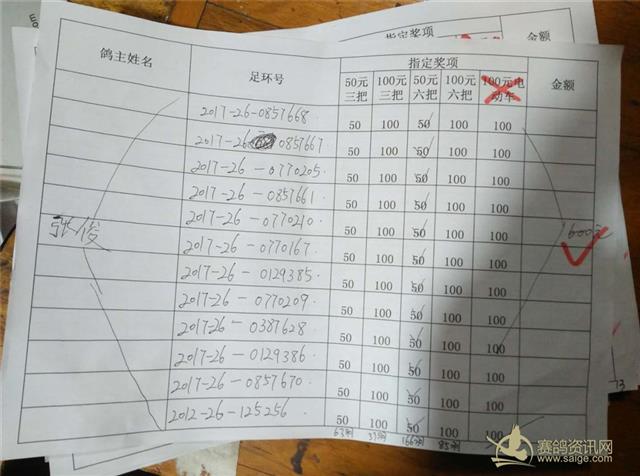 鸽主姓名 足环号 指定奖项 金额
50元三把 100元三把 50元六把 100元六把 100元电动车
2017-26-0857668 50 100 50 100 100
2017-26 0857667 50 100 50 100 100
2017-26-0770205 50 100 50 100 100
2017-26-0857661 50 100 50 100 100
2017-26-0770210 50 100 50 100 100
张俊 2017-26-0770167 50 100 50 100 100 600元
2017-26-0129385 50 100 50 100 100
2017-26-0770209 50 100 50 100 100
2017-26-0387628 50 100 50 100 100
2017-26-0129386 50 100 50 100 100
2017-26-0857670 50 100 50 100 100
2012-26-125256 50 100 50 100 100
指定奖项 金额
73
赛鸽资讯网
www.saige.com